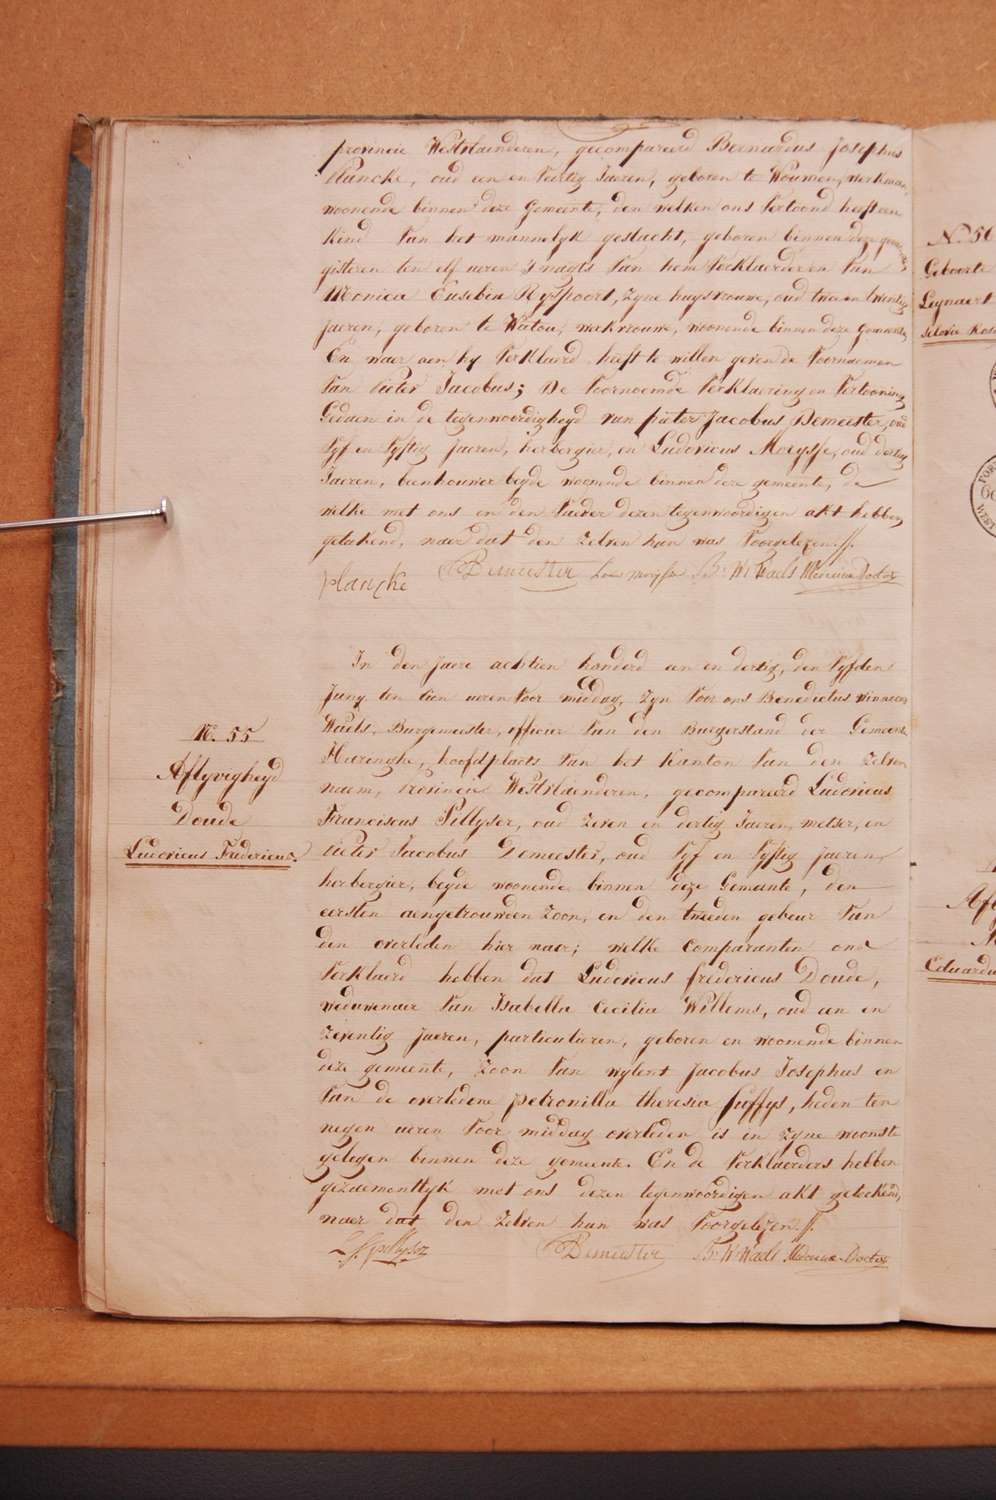 provincie Westvlaenderen, gecompareerd Bernardus Josephus
Plancke, oud een en veertig Jaeren, geboren te Wouwen, werkman,
woonende binnen deze Gemeente, den welken ons vertoond heeft een
kind van het mannelyk geslacht, geboren binnen deze gemeente
gisteren ten elf ueren 's nagts van hem verklaerder en van
Monica Eusebia Ryspoort, zyne huysvrouwe, oud twee en twintig
jaeren, geboren te Watou, werkvrouwe, woonende binnen deze gemeente,
En waer aen hy verklaerd heeft te willen geven de voornaemen
van Pieter Jacobus; De voornoemde verklaering en vertooning
Gedaen in de tegenwoordigheyd van pieter Jacobus Demeester, oud
vyf en vyftig Jaeren, herbergier, en Ludovicus Moeysse, oud dertig
Jaeren, beenhouwer beyde woonende binnen deze gemeente, de
welke met ons en den vaeder dezen tegenwoordigen akt hebben
geteekend, naer dat den zelven hun was voorgelezen //.
plancke Demeester Lou moeysse Bs. Wn. Waels Medicinæ Doctor
In den jaere achtien honderd een en dertig, den vyfden
Juny ten tien ueren voor middag, zyn voor ons Benedictus Winnocus
Waels, Burgemeester, officier van den Burgerstand der Gemeente
Haringhe, hoofdplaets van het kanton van den zelven
naem, provincie Westvlaenderen, gecompareerd Ludovicus
Franciscus Pillyser, oud zeven en dertig Jaeren, metser, en
Pieter Jacobus Demeester, oud vyf en vyftig jaeren,
herbergier, beyde woonende binnen deze Gemeente, den
eersten aengetrouwden zoon, en den tweeden gebeur van
den overleden hier naer; welke comparanten ons
verklaerd hebben dat Ludovicus fredericus Doude,
weduwenaer van Isabella Cecilia Willems, oud een en
zeventig jaeren, particulieren, geboren en woonende binnen
deze gemeente, zoon van wylent Jacobus Josephus en
van de overledene petronilla theresia
heden ten
negen ueren voor middag overleden is in zyne woonste
gelegen binnen deze gemeente. En de verklaerders hebben
gezaementlyk met ons dezen tegenwoordigen akt geteekend,
naer dat den zelven hun was voorgelezen //.
Demeester Bs. Wn. Waels Medicinæ Doctor
N. 55
Aflyvigheyd
Doude
Ludovicus Fredericus.
No. 56
Geboorte
Leynaert
Eduardu